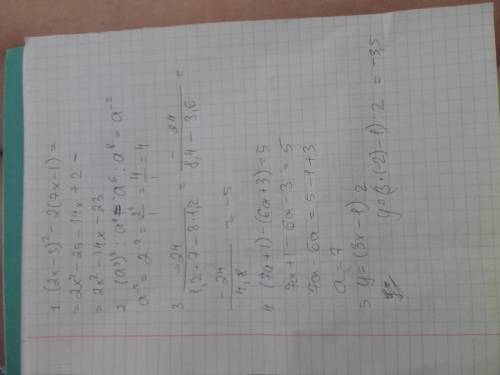 1 (2x-5)²-2(7x-1)=
=2x²-25-14x+2=
=2x²-14x-23
2 (a³)² : a⁸ = a⁶ : a⁸ = a⁻²
a⁻² = 2⁻² = 2²/1 = 4/1 = 4
3 -24/1,2·7-3·1,2 = -24/8,4-3,6 =
-24/4,8 = -5
4 (7a+1)-(6a+3)=5
7a+1-6a-3=5
7a 6a=5-1+3
a=7
5 y=(3x-1) 2
y= y=(3·(-2)-1) 2 =-3,5